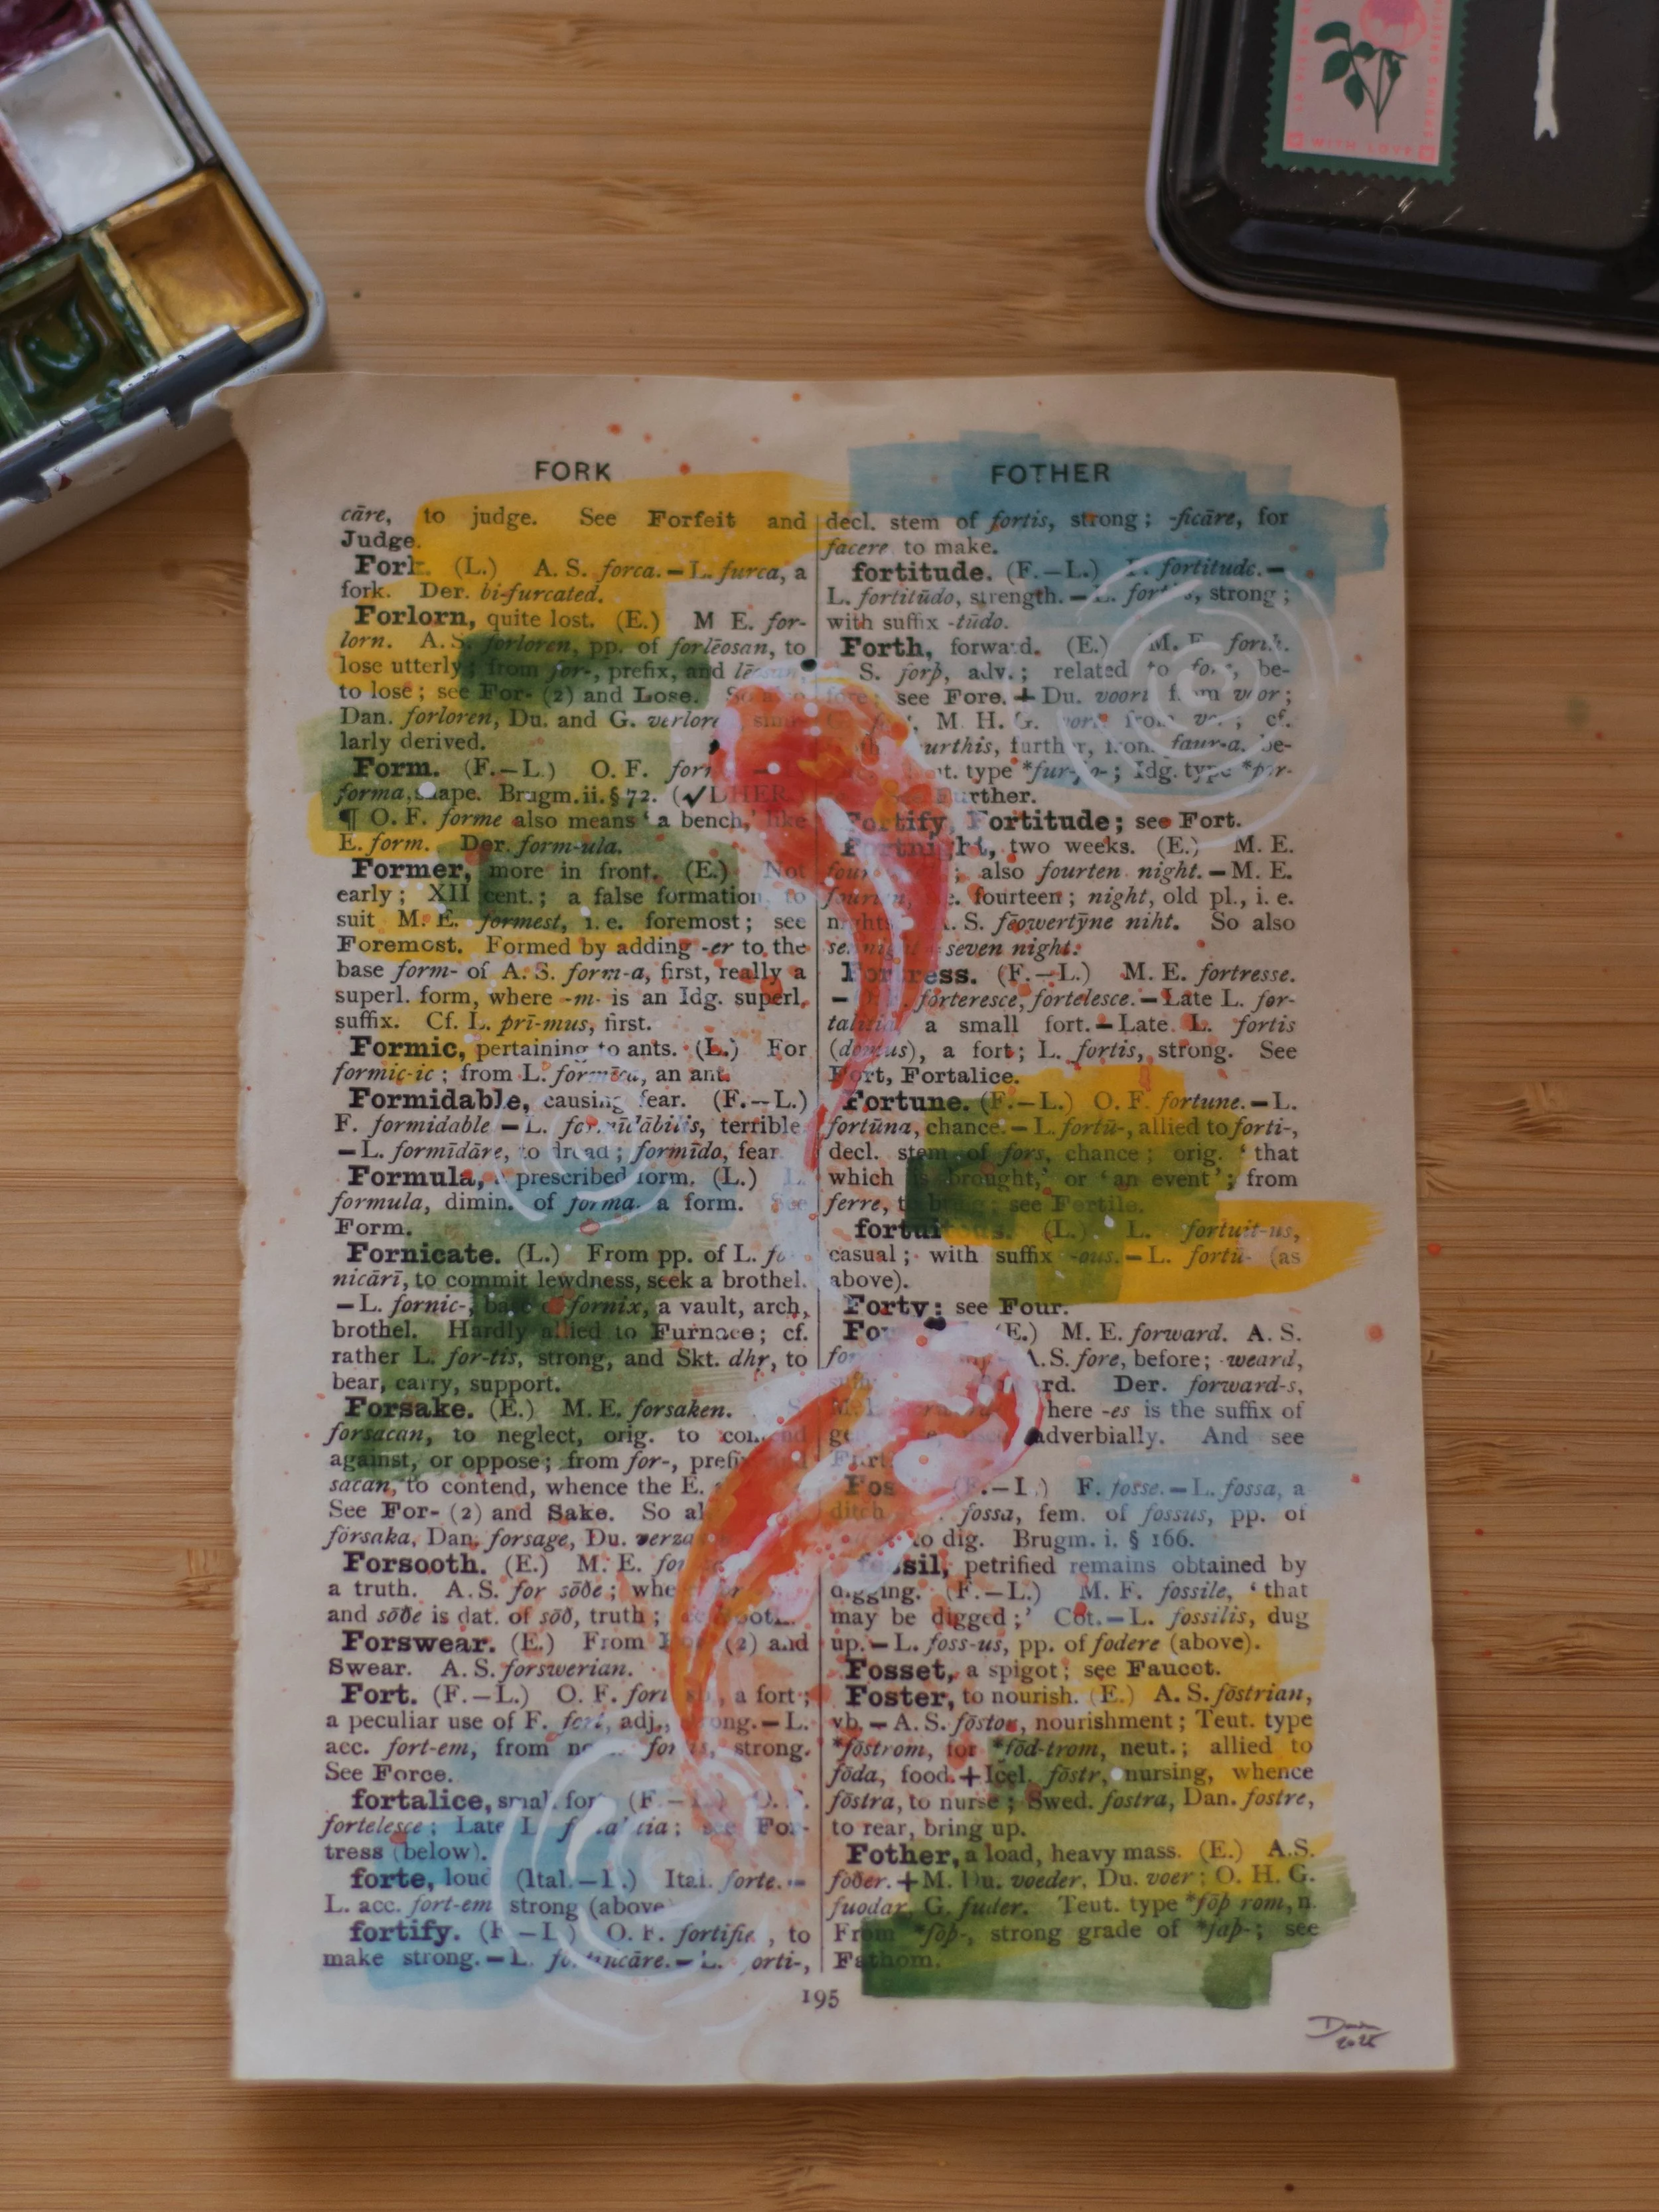 WITH LOVE
FORK
FOTHER
cāre, to judge. See Forfeit and
Judge.
Fork. (L.) A. S. forca. – L. furca, a
fork. Der. bi-furcated.
Forlorn, quite lost. (E.) M E. for-
lorn. A. S. forloren, pp. of forlēosan, to
lose utterly; from for-, prefix, and
to lose; see For- (2) and Lose. So also
Dan. forloren, Du. and G.
larly derived.
Form. (F.–L.) O. F.
forma, shape. Brugm. ii. § 72. (✓DHER
¶ O. F. forme also means ‘a bench,’ like
E. form. Der. form-ula.
Former, more in front. (E.) Not
early; XII cent.; a false formation to
suit M. E. formest, i.e. foremost; see
Foremost. Formed by adding -er to the
base form- of A. S. form-a, first, really a
superl. form, where -m- is an Idg. superl.
suffix. Cf. L. prī-mus, first.
Formic, pertaining to ants. (L.) For
formic-ic; from L. formīca, an ant.
Formidable, causing fear. (F.–L.)
F. formidable – L. formīdābilis, terrible
– L. formīdāre, to dread; formīdo, fear.
Formula, a prescribed form. (L.) L.
formula, dimin. of forma, a form. See
Form.
Fornicate. (L.) From pp. of L.
nicārī, to commit lewdness, seek a brothel.
– L. fornic-, base of fornix, a vault, arch,
brothel. Hardly allied to Furnace; cf.
rather L. for-tis, strong, and Skt. dhṛ, to
bear, carry, support.
Forsake. (E.) M. E. forsaken. S.
forsacan, to neglect, orig. to contend
against, or oppose; from for-,
sacan, to contend, whence the E.
See For- (2) and Sake. So
försaka, Dan. forsage, Du.
Forsooth. (E.) M. E.
a truth. A. S. for sōðe;
and sōðe is dat. of sōð, truth;
Forswear. (E.) From (2) and
Swear. A. S. forswerian.
Fort. (F.–L.) O. F. a fort;
a peculiar use of F. fort, adj., strong. – L.
acc. fort-em, from strong.
See Force.
fortalice, small fort. (F.–L.) O. F.
fortelesce; Late L. see For-
tress (below).
forte, loud (Ital.–L.) Ital. forte. –
L. acc. fort-em strong (above)
fortify. (F–L) O. F. fortifier, to
make strong. – L. fortificāre. – L. forti-,
decl. stem of fortis, strong; -ficāre, for
facere to make.
fortitude. (F.–L.) F. fortitude. –
L. fortitūdo, strength. – L. fortis, strong;
with suffix -tūdo.
Forth, forward. (E.) M. E. forth.
S. forþ, adv.; related to be-
fore; see Fore. + Du. voort from voor;
M. H. G. from cf.
further, from faur-a, be-
type *fur-þo-; Idg. type
Further.
Fortify, Fortitude; see Fort.
Fortnight, two weeks. (E.) M. E.
also fourten night. – M. E.
fourteen; night, old pl., i. e.
A. S. fēowertȳne niht. So also
seven night.
Fortress. (F.–L.) M. E. fortresse.
– forteresce, fortelesce. – Late L. for-
talitia a small fort. – Late L. fortis
(domus), a fort; L. fortis, strong. See
Fort, Fortalice.
Fortune. (F.–L.) O. F. fortune. – L.
fortūna, chance. – L. fortū-, allied to forti-,
decl. stem of fors, chance; orig. ‘that
which is brought,’ or ‘an event’; from
ferre, to bring; see Fertile.
fortuitous. (L.) L. fortuit-us,
casual; with suffix -ous. – L. fortū- (as
above).
Forty; see Four.
(E.) M. E. forward. A. S.
A. S. fore, before; -weard,
Der. forward-s,
-es is the suffix of
adverbially. And see
(F.–L) F. fosse. – L. fossa, a
ditch fossa, fem. of fossus, pp. of
to dig. Brugm. i. § 166.
fossil, petrified remains obtained by
digging. (F.–L.) M. F. fossile, ‘that
may be digged;’ Cot. – L. fossilis, dug
up. – L. foss-us, pp. of fodere (above).
Fosset, a spigot; see Faucet.
Foster, to nourish. (E.) A. S. fōstrian,
vb. – A. S. fōstor, nourishment; Teut. type
*fōstrom, for *fōd-trom, neut.; allied to
fōda, food. + Icel. fōstr, nursing, whence
fōstra, to nurse; Swed. fostra, Dan. fostre,
to rear, bring up.
Fother, a load, heavy mass. (E.) A.S.
fōðer. + M. Du. voeder, Du. voer; O. H. G.
fuodar, G. fuder. Teut. type *fōþ rom, n.
From *fōþ-, strong grade of *faþ-; see
Fathom.
195